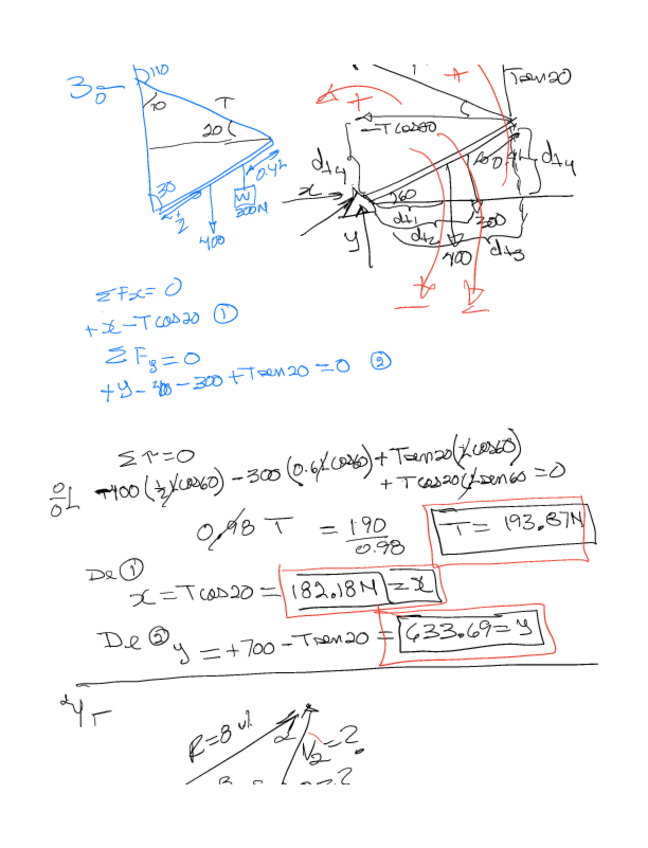 3o-
110
70
T
20
30
0.4L
L/2
W
300N
400
+
Tsen20
+
-Tcos20
0.4L
dt4
dt4
x
60
dt1
300
dt2
dt3
y
400
ΣFx=0
+x-Tcos20 ①
ΣFy=0
+y-400-300+Tsen20=0 ②
Στ=0
-400(1/2 L cos60)-300(0.6L cos60)+Tsen20(L cos60)
+Tcos20(L sen60=0
0.98 T = 190/0.98
T= 193.87N
De ①
x=Tcos20= 182.18N =x
De ② y=+700-Tsen20= 633.69=y
R=8 u
2
V2=?